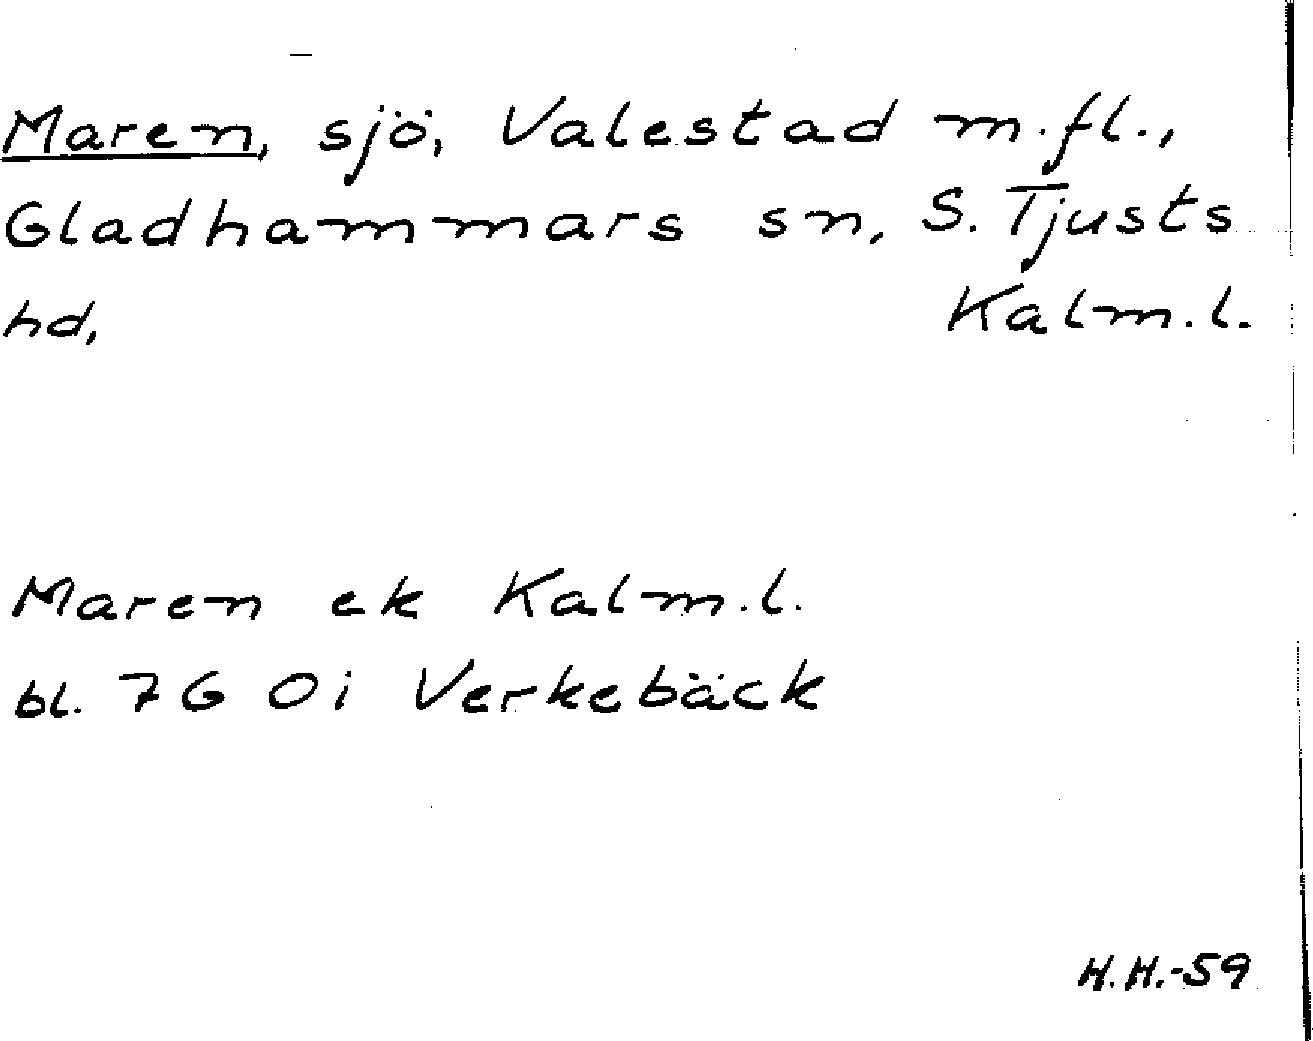 Maren, sjö, Valestad m.fl.,
Gladhammars sn, S. Tjusts
hd, Kalm.l.
Maren ek Kalm.l.
bl. 7G 0i Verkebäck
H.H.-59